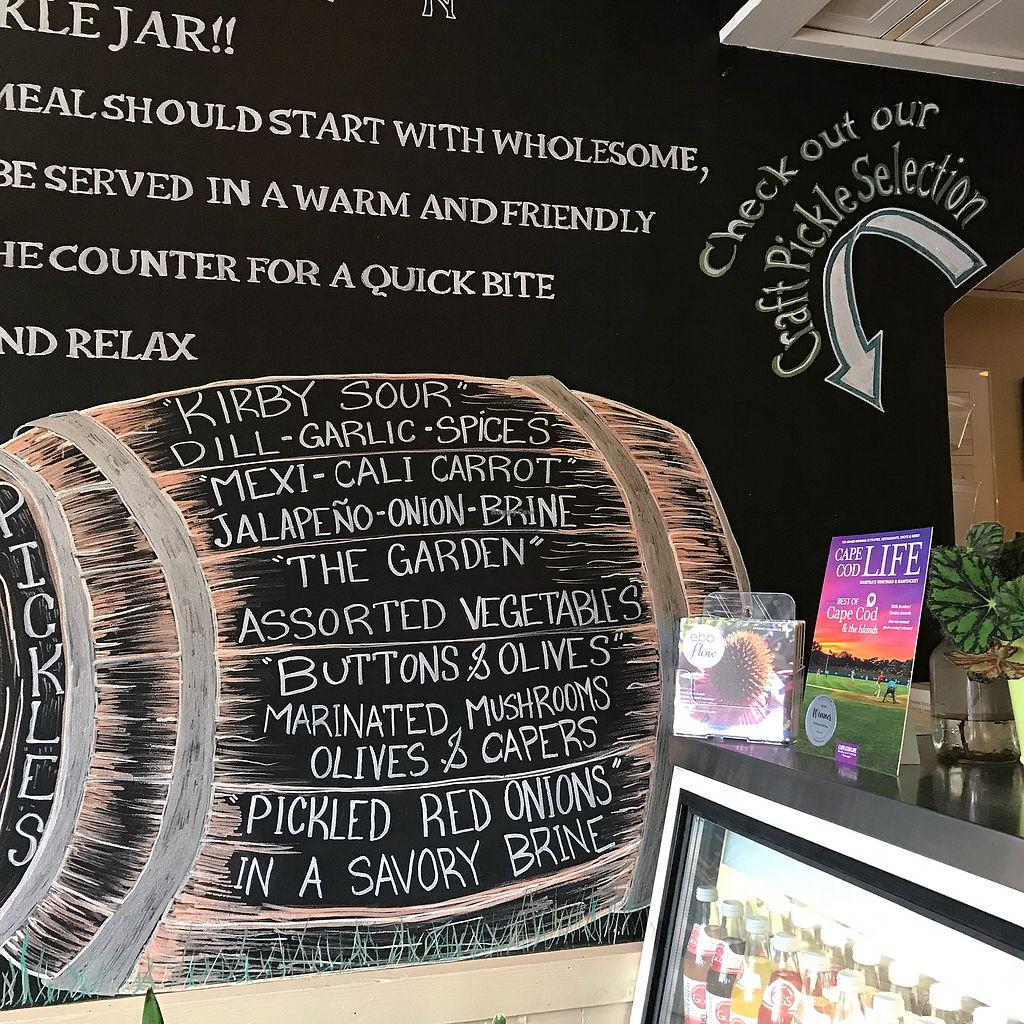 KLE JAR!!
MEAL SHOULD START WITH WHOLESOME,
BE SERVED IN A WARM AND FRIENDLY
HE COUNTER FOR A QUICK BITE
ND RELAX
Check out our
Craft Pickle Selection
"KIRBY SOUR"
DILL-GARLIC-SPICES
"MEXI-CALI CARROT"
JALAPEÑO-ONION-BRINE
"THE GARDEN"
ASSORTED VEGETABLES
"BUTTONS & OLIVES"
MARINATED MUSHROOMS
OLIVES & CAPERS
"PICKLED RED ONIONS"
IN A SAVORY BRINE
PICKLE'S
ebb
flow
CAPE COD LIFE
MARTHA'S VINEYARD & NANTUCKET
BEST OF
Cape Cod
& the Islands
Winner